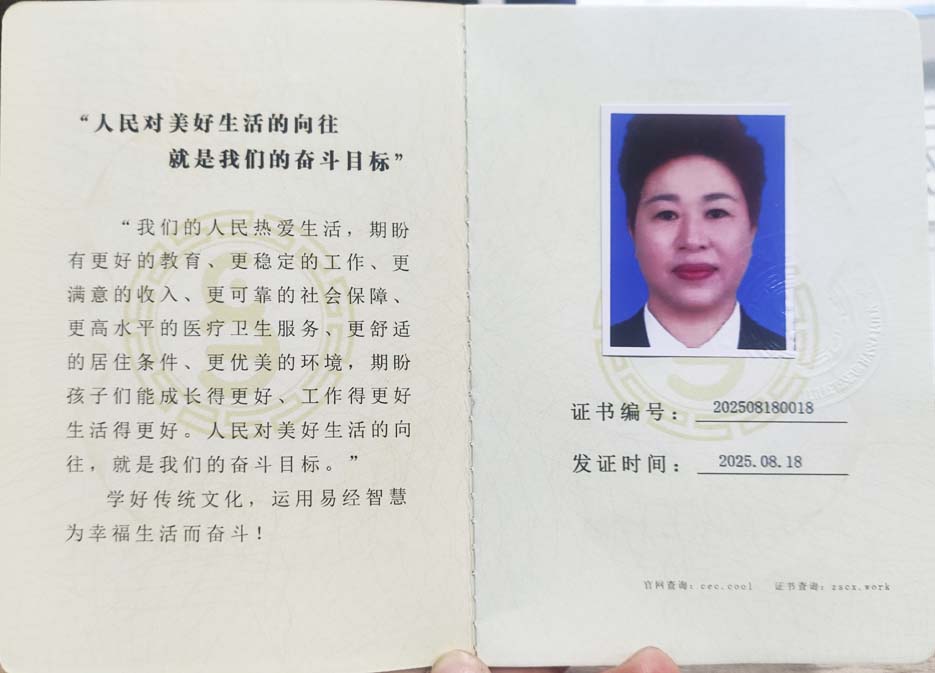 “人民对美好生活的向往
就是我们的奋斗目标”
“我们的人民热爱生活，期盼
有更好的教育、更稳定的工作、更
满意的收入、更可靠的社会保障、
更高水平的医疗卫生服务、更舒适
的居住条件、更优美的环境，期盼
孩子们能成长得更好、工作得更好
生活得更好。人民对美好生活的向
往，就是我们的奋斗目标。”
学好传统文化，运用易经智慧
为幸福生活而奋斗！
证书编号：202508180018
发证时间：2025.08.18
官网查询：cec.cool 证书查询：zscx.work